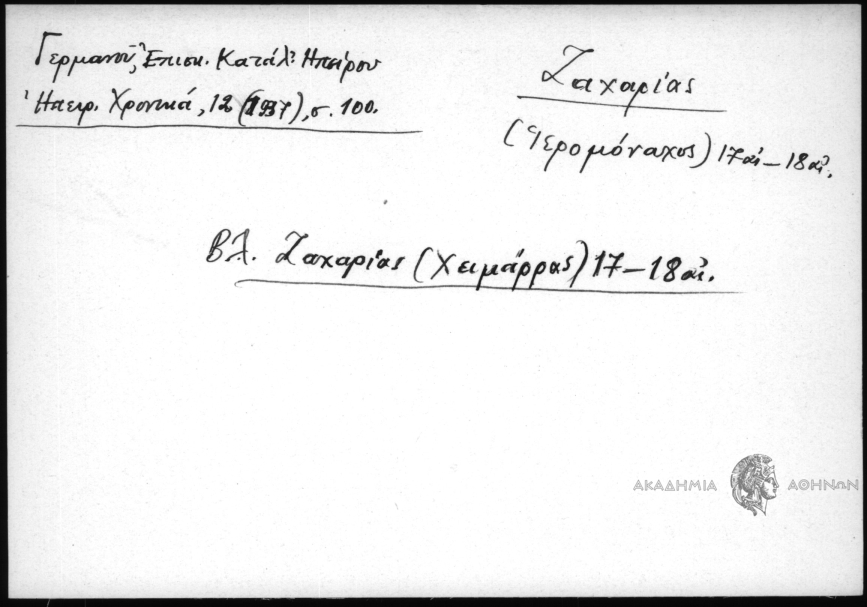 Γερμανοῦ, Ἐπισκ. Κατάλ. Ἠπείρου
Ἠπειρ. Χρονικά, 12 (1937), σ. 100.
Ζαχαρίας
(Ἱερομόναχος) 17 αἰ – 18 αἰ.
Βλ. Ζαχαρίας (Χειμάρρας) 17 – 18 αἰ.
ΑΚΑΔΗΜΙΑ ΑΘΗΝΩΝ